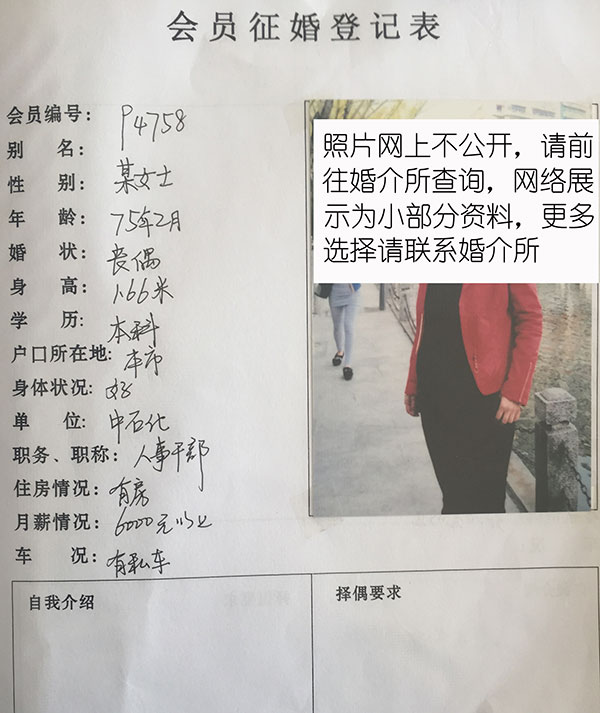 会员征婚登记表
会员编号：P4758
别 名：
性 别：某女士
年 龄：75年2月
婚 状：丧偶
身 高：1.66米
学 历：本科
户口所在地：本市
身体状况：好
单 位：中石化
职务、职称：人事干部
住房情况：有房
月薪情况：6000元以上
车 况：有私车
照片网上不公开，请前
往婚介所查询，网络展
示为小部分资料，更多
选择请联系婚介所
自我介绍
择偶要求